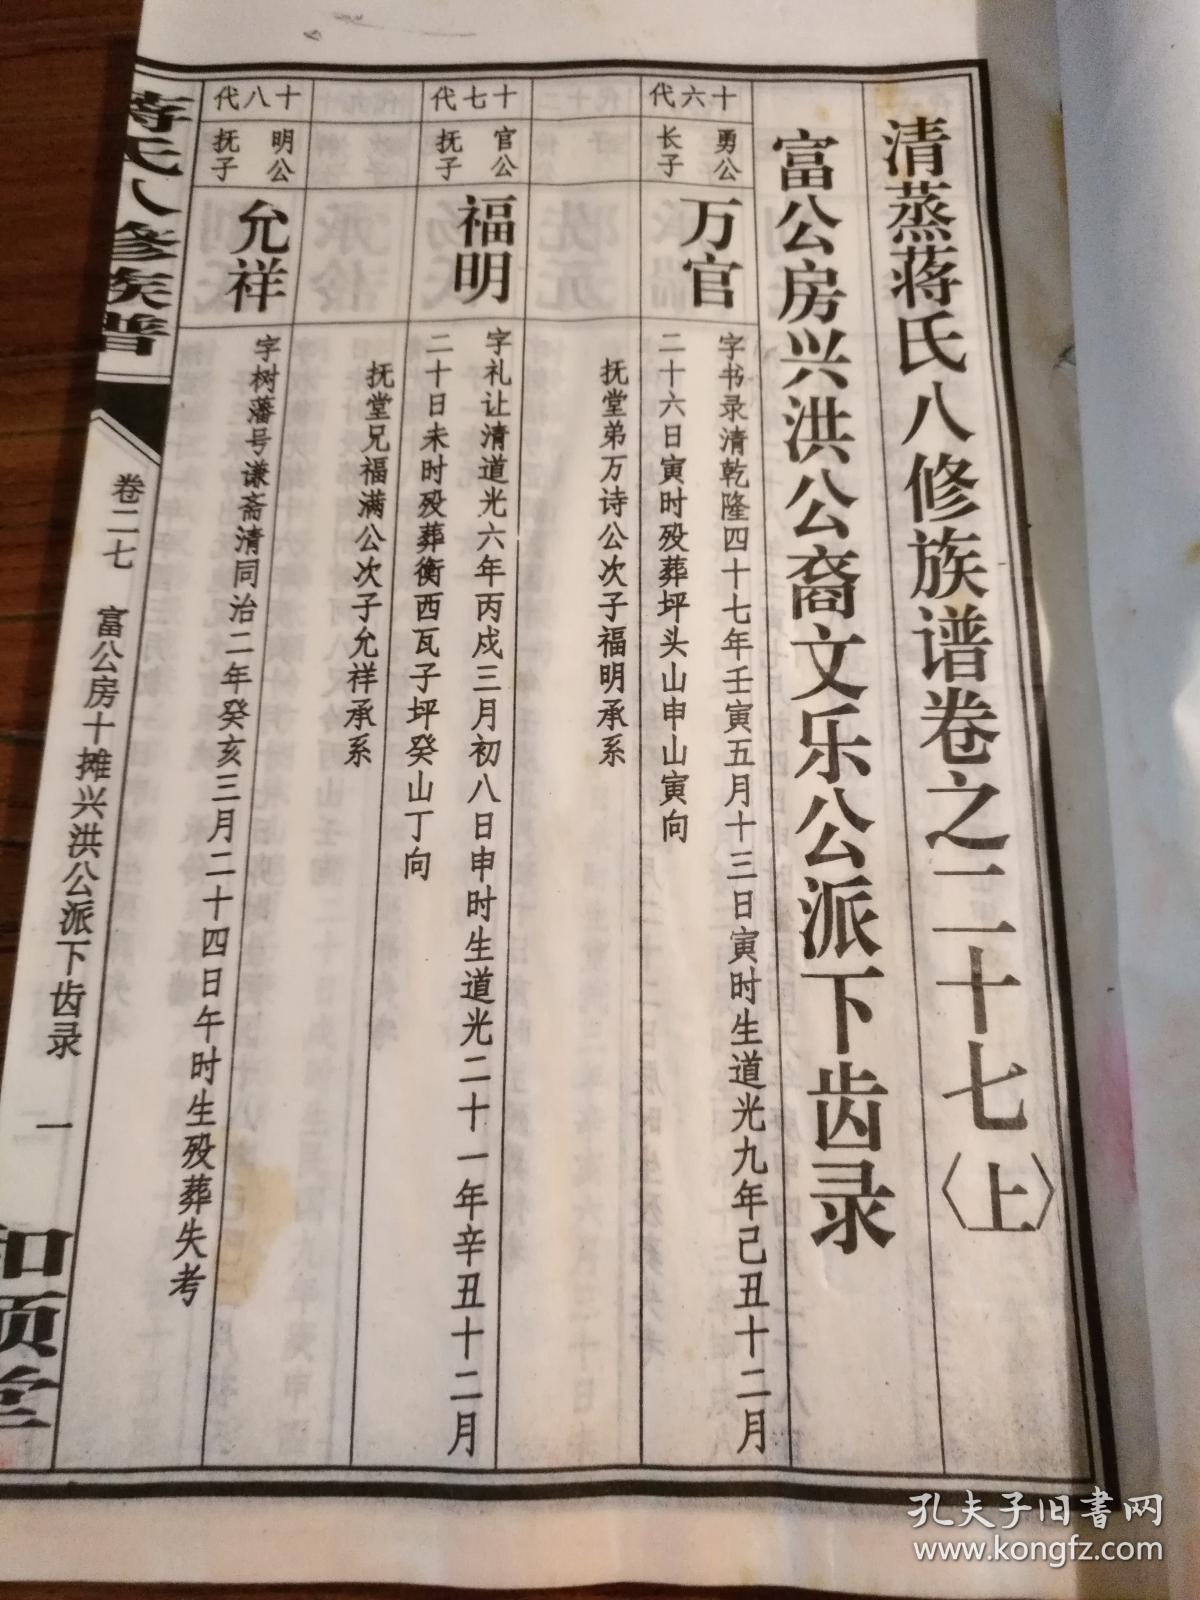 清蒸蒋氏八修族谱卷之二十七〈上〉
富公房兴洪公裔文乐公派下齿录
十六代
勇公
长子
万官
字书录清乾隆四十七年壬寅五月十三日寅时生道光九年己丑十二月
二十六日寅时殁葬坪头山申山寅向
抚堂弟万诗公次子福明承系
十七代
官公
抚子
福明
字礼让清道光六年丙戍三月初八日申时生道光二十一年辛丑十二月
二十日未时殁葬衡西瓦子坪癸山丁向
抚堂兄福满公次子允祥承系
十八代
明公
抚子
允祥
字树藩号谦斋清同治二年癸亥三月二十四日午时生殁葬失考
蒋氏八修族谱
卷二七 富公房十摊兴洪公派下齿录 一
和顺堂
孔夫子旧书网
www.kongfz.com